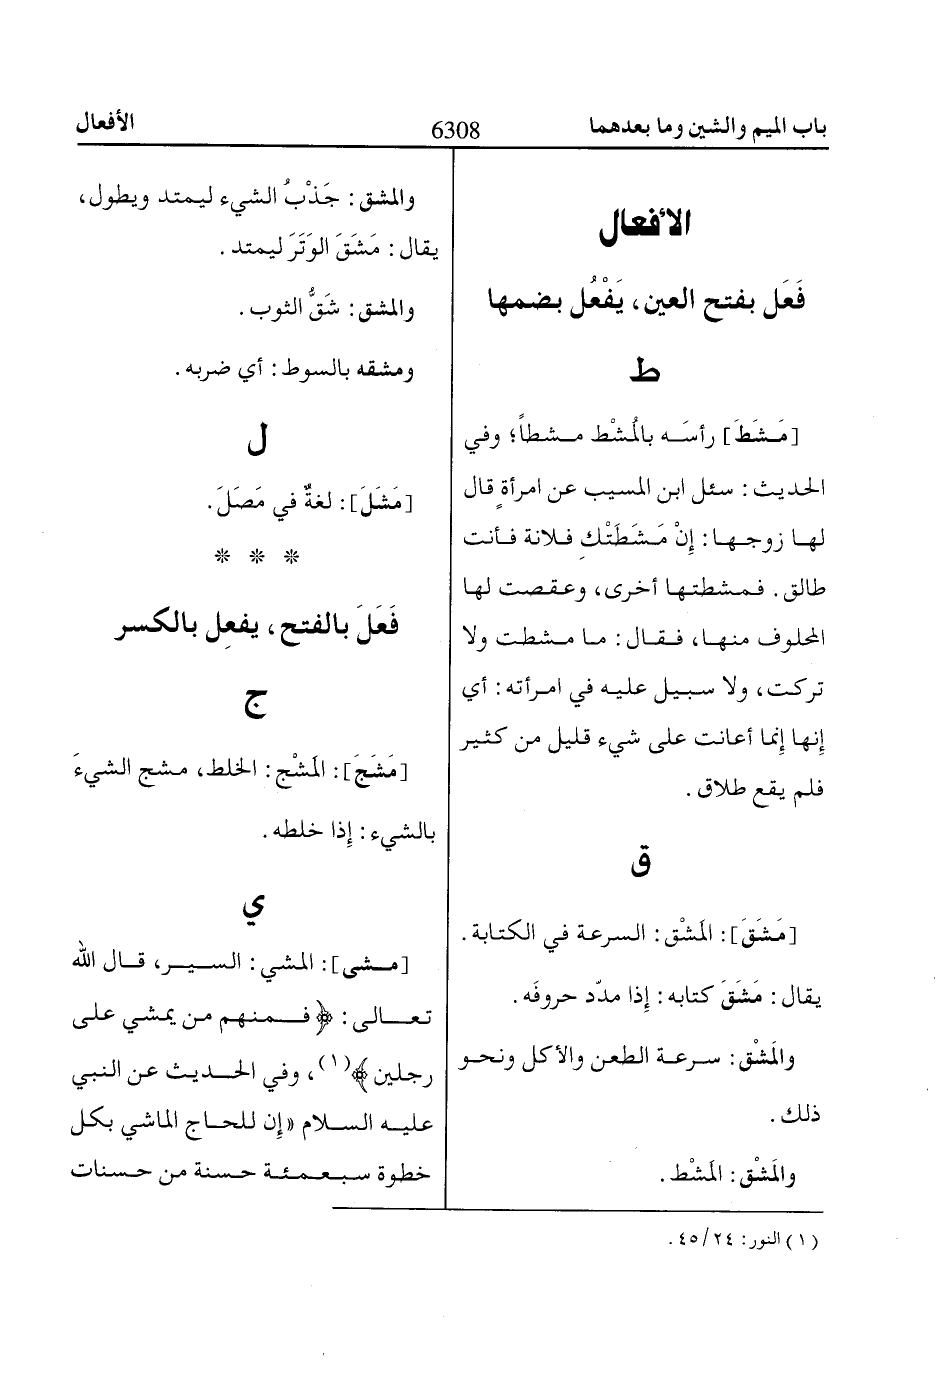 باب الميم والشين وما بعدهما
6308
الأفعال
الأفعال
فَعَل بفتح العين، يَفْعُل بضمها
ط
[مَشَطَ] رأسَه بالمُشْط مشطاً؛ وفي
الحديث: سئل ابن المسيب عن امرأةٍ قال
لها زوجها: إِنْ مَشَطَتْكِ فلانة فأنت
طالق. فمشطتها أخرى، وعقصت لها
المحلوف منها، فقال: ما مشطت ولا
تركت، ولا سبيل عليه في امرأته: أي
إِنها إِنما أعانت على شيء قليل من كثير
فلم يقع طلاق.
ق
[مَشَقَ]: المَشْق: السرعة في الكتابة.
يقال: مَشَقَ كتابه: إِذا مدّد حروفَه.
والمَشْق: سرعة الطعن والأكل ونحو
ذلك.
والمَشْق: المَشْط.
والمشق: جَذْبُ الشيء ليمتد ويطول،
يقال: مَشَقَ الوَتَرَ ليمتد.
والمشق: شَقُّ الثوب.
ومشقه بالسوط: أي ضربه.
ل
[مَشَلَ]: لغةٌ في مَصَلَ.
* * *
فَعَلَ بالفتح، يفعِل بالكسر
ج
[مَشَجَ]: المَشْج: الخلط، مشج الشيءَ
بالشيء: إِذا خلطه.
ي
[مشى]: المشي: السير، قال الله
تعالى: ﴿فمنهم من يمشي على
رجلين﴾(١)، وفي الحديث عن النبي
عليه السلام «إِن للحاج الماشي بكل
خطوة سبعمئة حسنة من حسنات
(١) النور: ٢٤/ ٤٥.